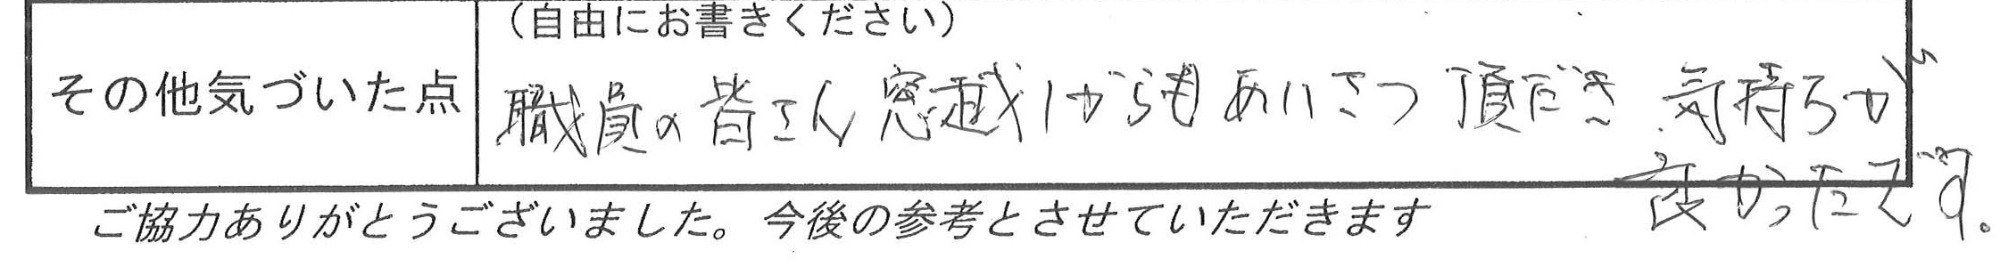 (自由にお書きください)
その他気づいた点
職員の皆さん窓越しからもあいさつ頂だき 気持ちが
良かったです。
ご協力ありがとうございました。今後の参考とさせていただきます